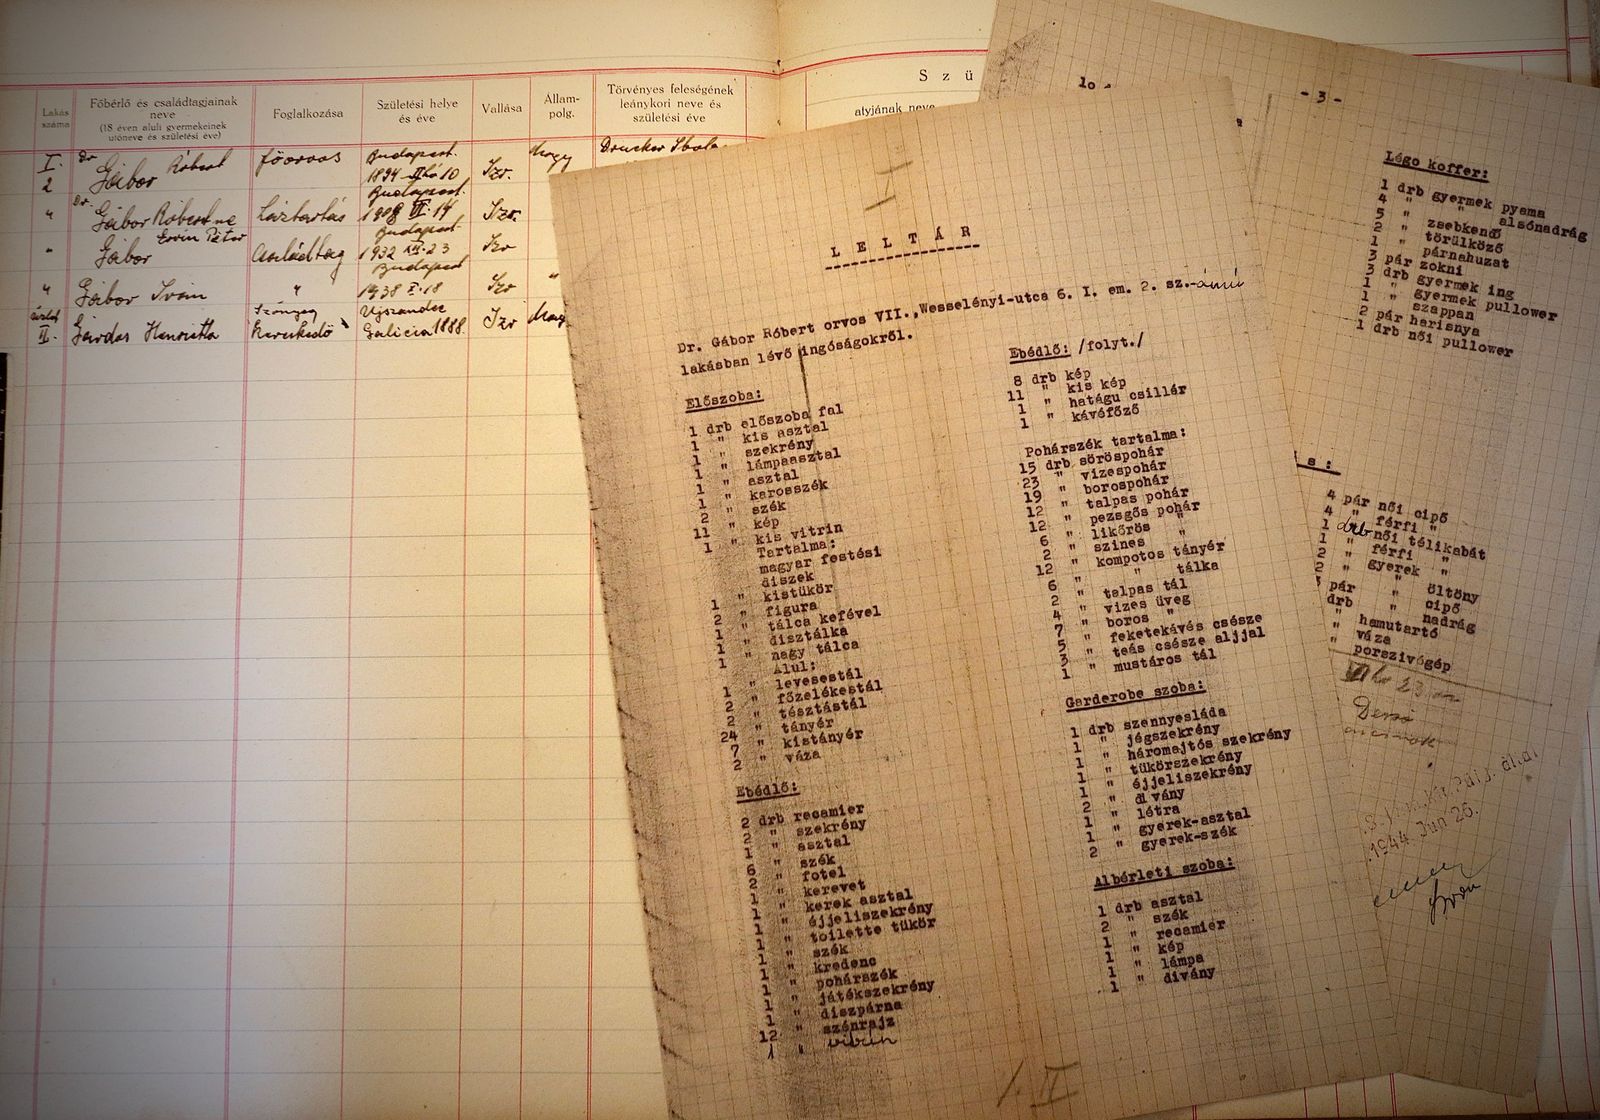 Lakás száma
Főbérlő és családtagjainak neve
(18 éven aluli gyermekeinek utóneve és születési éve)
Foglalkozása
Születési helye és éve
Vallása
Állam-polg.
Törvényes feleségének leánykori neve és születési éve
Szü
atyjának neve
I. 2 Dr Gábor Róbert főorvos Budapest. 1894 10 Izr. Magy
" Dr. Gábor Róbertne háztartás Budapest. 1908 VI. 14 Izr.
" Gábor Ervin Péter családtag Budapest 1932 23 Izr
" Gábor Iván " Budapest 1938 I. 18 Izr "
II. Gárdos Henrietta Galicia 1888. Izr Magy
LELTÁR
Dr. Gábor Róbert orvos VII.,Wesselényi-utca 6. I. em. 2. sz.
lakásban lévő ingóságokről.
Előszoba:
1 drb előszoba fal
1 " kis asztal
1 " szekrény
1 " lámpaasztal
1 " asztal
1 " karosszék
2 " szék
11 " kép
1 " kis vitrin
Tartalma:
magyar festési
diszek
1 " kistükör
2 " figura
1 " tálca kefével
1 " disztálka
1 " nagy tálca
Alul:
1 " levesestál
2 " főzelékestál
2 " tésztástál
24 " tányér
7 " kistányér
2 " váza
Ebédlő:
2 drb recamier
2 " szekrény
1 " asztal
6 " szék
2 " fotel
1 " kerevet
1 " kerek asztal
1 " éjjeliszekrény
1 " toilette tükör
1 " szék
1 " kredenc
1 " pohárszék
1 " játékszekrény
1 " diszpárna
12 " szénrajz
1 " vitrin
Ebédlő: /folyt./
8 drb kép
11 " kis kép
1 " hatágu csillár
1 " kávéfőző
Pohárszék tartalma:
15 drb söröspohár
23 " vizespohár
19 " borospohár
12 " talpas pohár
12 " pezsgős pohár
6 " likőrös "
2 " szines "
12 " kompotos tányér
6 " " tálka
2 " talpas tál
4 " vizes üveg
7 " boros "
5 " feketekávés csésze
3 " teás csésze aljjal
1 " mustáros tál
Garderobe szoba:
1 drb szennyesláda
1 " jégszekrény
1 " háromajtós szekrény
1 " tükörszekrény
1 " éjjeliszekrény
2 " divány
1 " létra
1 " gyerek-asztal
2 " gyerek-szék
Albérleti szoba:
1 drb asztal
2 " szék
1 " recamier
1 " kép
1 " lámpa
1 " divány
I. II
- 3 -
Légo koffer:
1 drb gyermek pyama
4 " " alsónadrág
5 " zsebkendő
2 " törülköző
1 " párnahuzat
3 pár zokni
3 drb gyermek ing
1 " gyermek pullower
1 " szappan
2 pár harisnya
1 drb női pullower
s:
4 pár női cipő
4 " férfi "
1 drb női télikabát
1 " férfi "
2 " gyerek "
2 " " öltöny
pár " cipő
drb " nadrág
" hamutartó
" váza
porszivógép
1944 Jun 26.